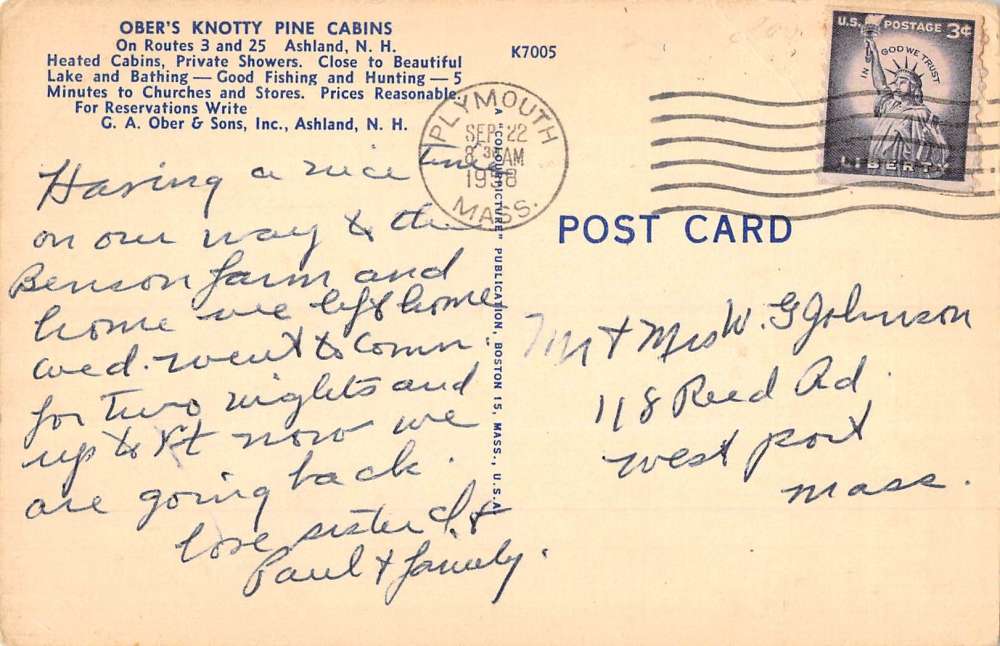 OBER'S KNOTTY PINE CABINS
On Routes 3 and 25 Ashland, N. H.
Heated Cabins, Private Showers. Close to Beautiful
Lake and Bathing — Good Fishing and Hunting — 5
Minutes to Churches and Stores. Prices Reasonable.
For Reservations Write
G. A. Ober & Sons, Inc., Ashland, N. H.
K7005
PLYMOUTH
SEP 22
8 30 AM
1958
MASS.
U.S. POSTAGE 3¢
IN GOD WE TRUST
LIBERTY
Having a nice time
on our way to the
Benson farm and
home we left home
wed. went to Conn
for two nights and
up to Vt now we
are going back.
love sister
Paul & family.
A "COLOURPICTURE" PUBLICATION, BOSTON 15, MASS., U.S.A.
POST CARD
Mr & Mrs W. G Johnson
118 Reed Rd.
West port
Mass.